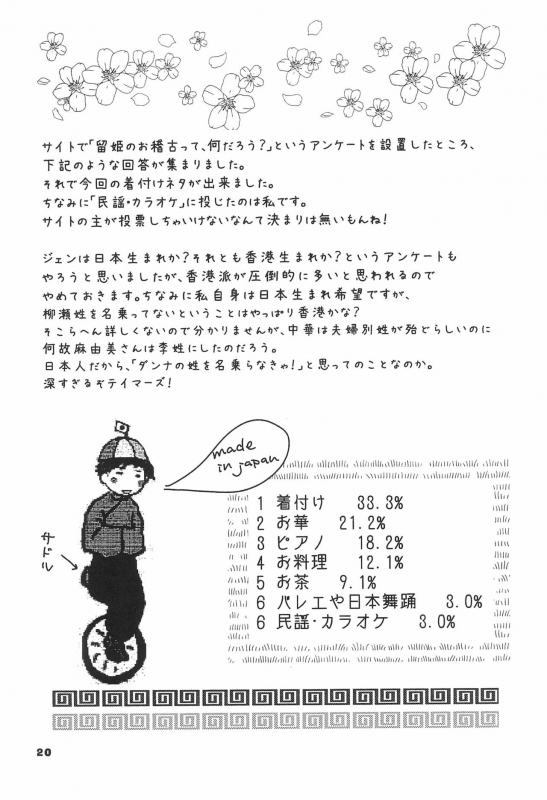 サイトで「留姫のお稽古って、何だろう?」というアンケートを設置したところ、
下記のような回答が集まりました。
それで今回の着付けネタが出来ました。
ちなみに「民謡・カラオケ」に投じたのは私です。
サイトの主が投票しちゃいけないなんて決まりは無いもんね!
ジェンは日本生まれか?それとも香港生まれか?というアンケートも
やろうと思いましたが、香港派が圧倒的に多いと思われるので
やめておきます。ちなみに私自身は日本生まれ希望ですが、
柳瀬姓を名乗ってないということはやっぱり香港かな?
そこらへん詳しくないので分かりませんが、中華は夫婦別姓が殆どらしいのに
何故麻由美さんは李姓にしたのだろう。
日本人だから、「ダンナの姓を名乗らなきゃ!」と思ってのことなのか。
深すぎるぞテイマーズ!
made
in japan
サドル
1 着付け 33.3%
2 お華 21.2%
3 ピアノ 18.2%
4 お料理 12.1%
5 お茶 9.1%
6 バレエや日本舞踊 3.0%
6 民謡・カラオケ 3.0%
20